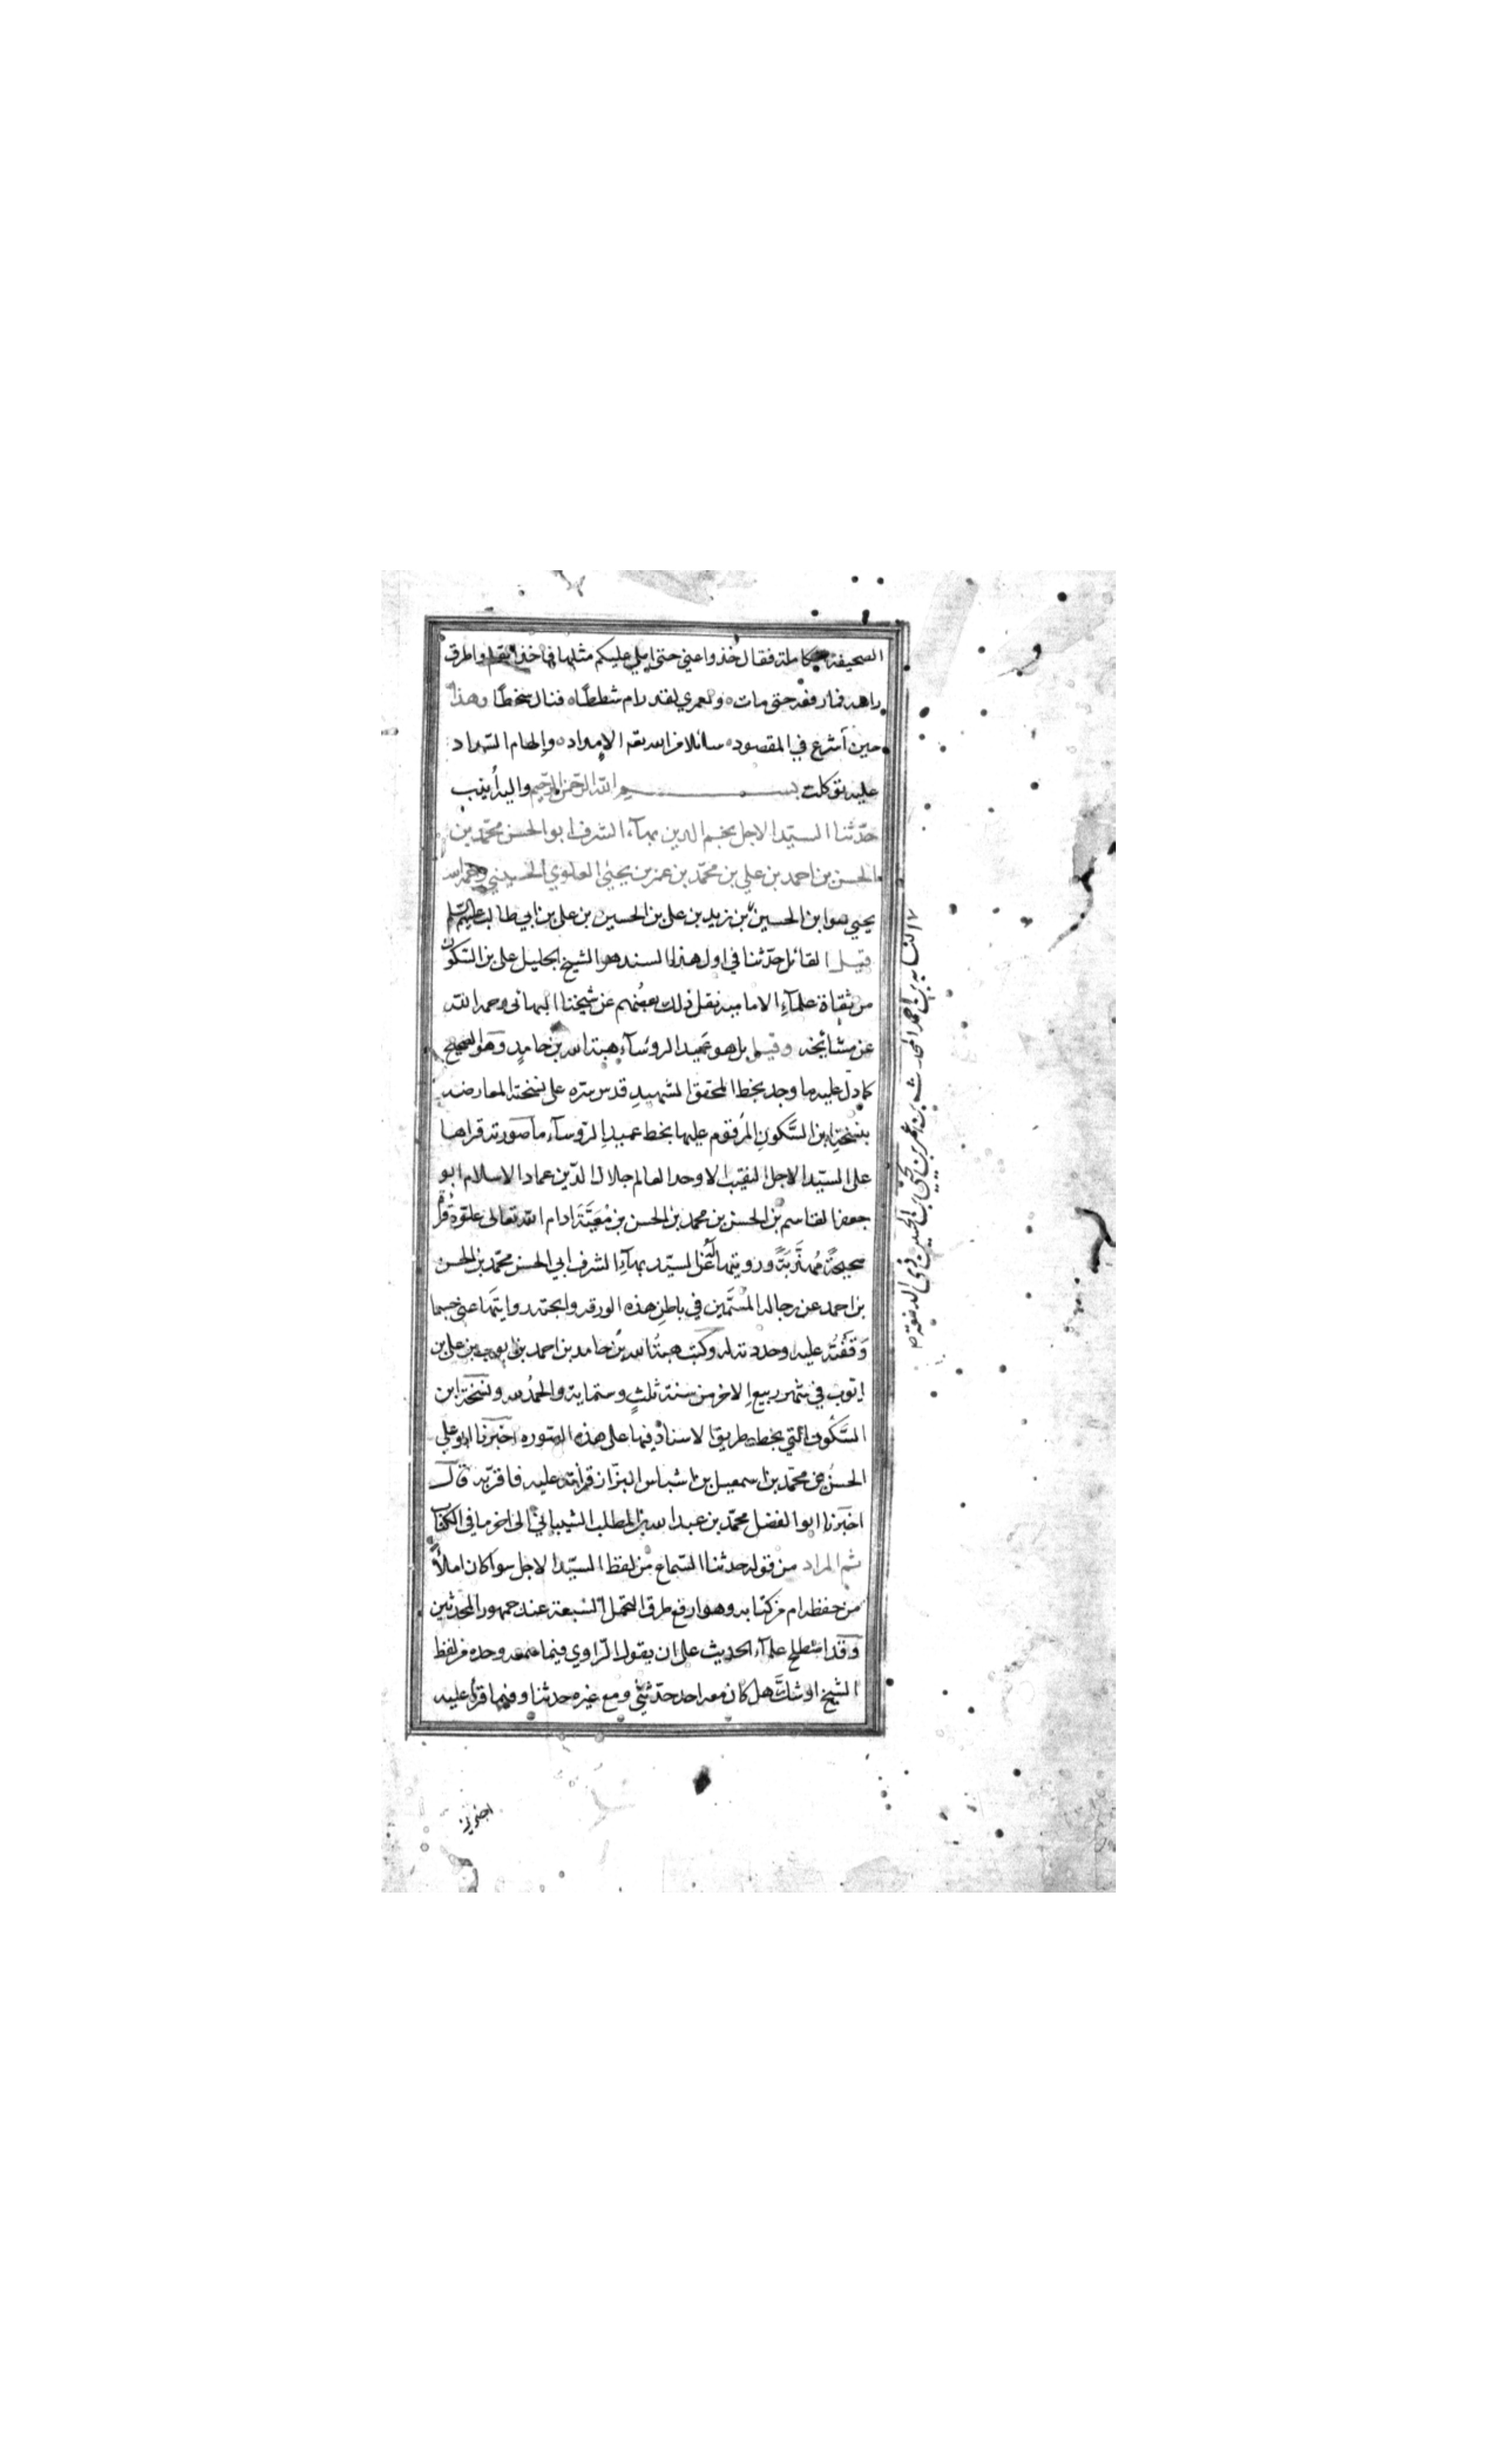 الصحيفة الكاملة فقال خذوا عني حتى املي عليكم مثلها فاخذ القلم واطرق
راسه فما رفعه حتى مات ه ولعمري لقد رام شططًا ه فنال سخطًا وهذا
حين أشرع في المقصود ه سائلا من الله تعم الامداد ه والهام السداد
عليه توكلت بسم الله الرحمن الرحيم واليه أنيب
حدّثنا السيّد الاجل نجم الدين بهآء الشرف ابو الحسن محمّد بن
الحسن بن احمد بن علي بن محمّد بن عمر بن يحيى العلوي الحسيني رحمه الله
يحيى هو ابن الحسين بن زيد بن علي بن الحسين بن علي بن ابي طالب عليهم السلم
قيل القائل حدّثنا في اول هذا السند هو الشيخ الجليل علي بن السّكون
من ثقاة علمآء الاماميه نقل ذلك بعضهم عن شيخنا البهائي رحمه الله
عن مشائخه وقيل بل هو عميد الروسآء هبة الله بن حامد وهو الصحيح
كما دل عليه ما وجد بخط المحقق الشهيد قدس سره على نسخته المعارضه
بنسخة ابن السَّكون المرقوم عليها بخط عميد الروسآء ما صورته قراها
على السيّد الاجل النقيب الاوحد العالم جلال الدّين عماد الاسلام ابو
جعفر القاسم بن الحسن بن محمد بن الحسن بن مُعَيَّةَ ادام الله تعالى علوّه قراءة
صحيحةً مُهذَّبَةً ورويتها له عن السيّد بهآء الشرف ابي الحسن محمّد بن الحسن
بن احمد عن رجاله المُسَمَّين في باطن هذه الورقه وابحته روايتَها عني حسبما
وَقَفْتُه عليه وحددته له وكتب هبةُ الله بنُ حامد بن احمد بن ايوب بن علي بن
ايّوب في شهر ربيع الاخر من سنة ثلثٍ وستماية والحمدُ لله ونسخة ابن
السَّكون التي بخطه طريق الاسناد فيها على هذه الصّوره اخبرنا ابو علي
الحسن بن محمّد بن اسمعيل بن اشناس البزّاز قراءة عليه فاقرّ به قال
اخبرنا ابو الفضل محمّد بن عبد الله بن المطلب الشيباني الى اخر ما في الكتاب
ثم المراد من قوله حدثنا السّماع من لفظ السيّد الاجل سوا كان املاءً
من حفظه ام من كتابه وهو ارفع طرق التحمل السّبعة عند جمهور المحدثين
وقد اصطلح علمآء الحديث على ان يقول الرّاوي فيما سمعه وحده من لفظ
الشيخ او شكَّ هل كان معه احد حدّثني ومع غيره حدثنا وفيما قرأ عليه
النسابه بن احمد المحدث بن عمر بن يحيى بن الحسين ذي الدمعة
اخبرني